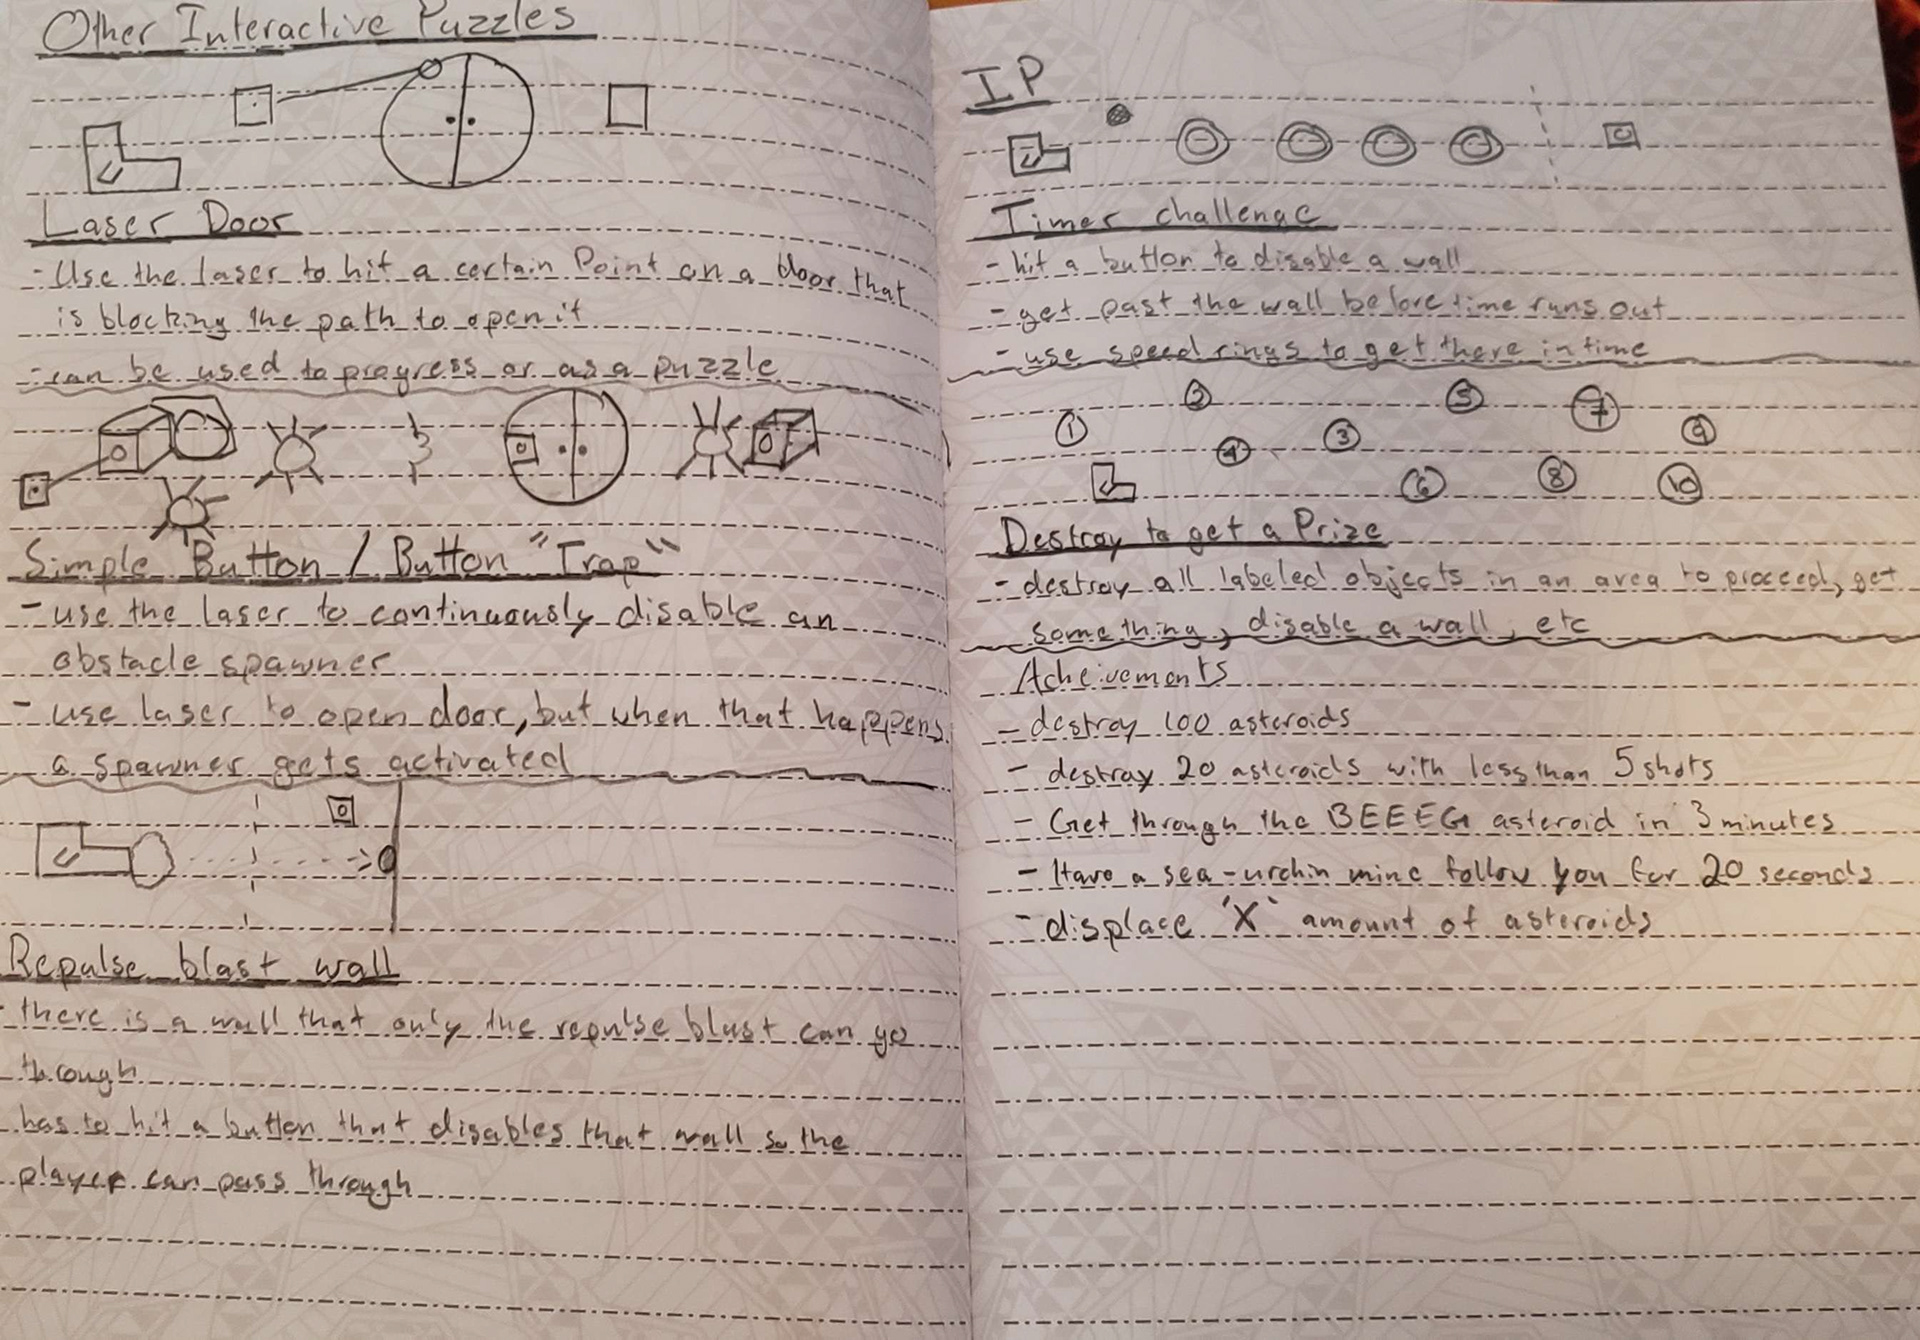 Other Interactive Puzzles
Laser Door
- Use the laser to hit a certain Point on a door that
is blocking the path to open it
- can be used to progress or as a puzzle
Simple Button / Button "Trap"
- use the laser to continuously disable an
obstacle spawner
- use laser to open door, but when that happens
a spawner gets activated
Repulse blast wall
- there is a wall that only the repulse blast can go
through
has to hit a button that disables that wall so the
player can pass through
IP
Timer challenge
- hit a button to disable a wall
- get past the wall before time runs out
- use speed rings to get there in time
1 2 4 3 5 6 7 8 9 10
Destroy to get a Prize
- destroy all labeled objects in an area to proceed, get
something, disable a wall, etc
Acheivements
- destroy 100 asteroids
- destray 20 asteroids with less than 5 shots
- Get through the BEEEG asteroid in 3 minutes
- Have a sea-urchin mine follow you for 20 seconds
- displace 'X' amount of asteroids